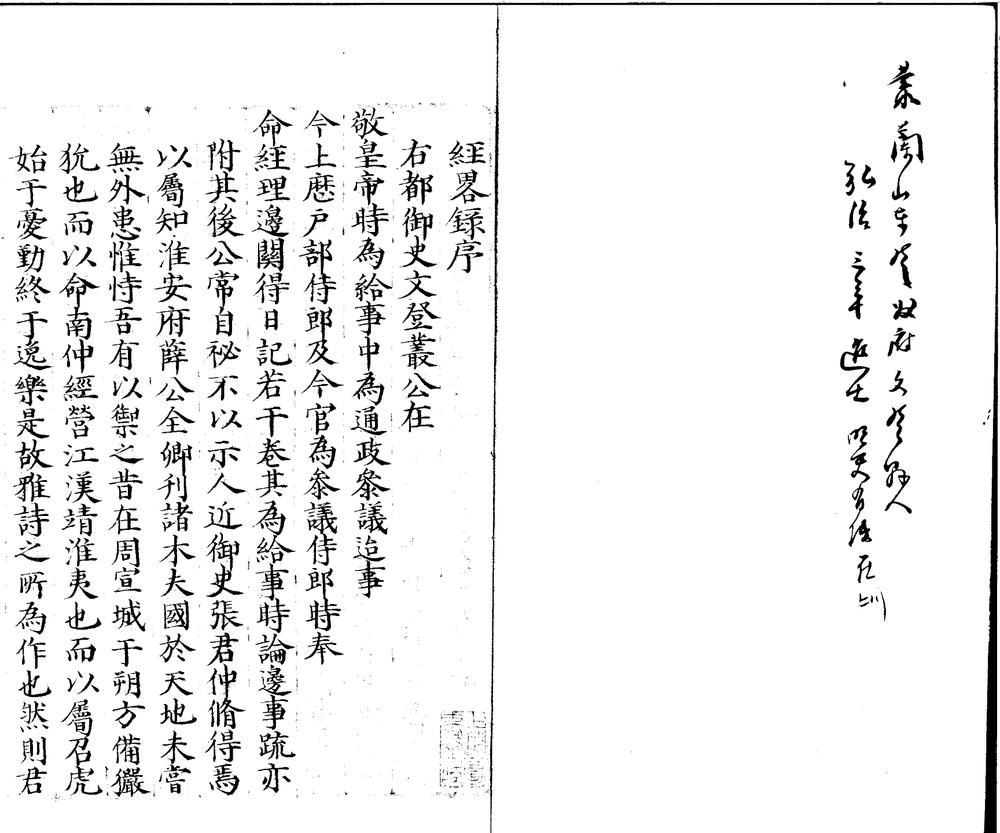 叢蘭山東登州府文登縣人
弘治三年進士 明史有傳
經畧錄序
右都御史文登叢公在
敬皇帝時為給事中為通政叅議迨事
今上歷戶部侍郎及今官為叅議侍郎時奉
命經理邊關得日記若干卷其為給事時論邊事疏亦
附其後公常自祕不以示人近御史張君仲脩得焉
以屬知淮安府薛公全卿刋諸木夫國於天地未嘗
無外患惟恃吾有以禦之昔在周宣城于朔方備玁
狁也而以命南仲經營江漢靖淮夷也而以屬召虎
始于憂勤終于逸樂是故雅詩之所為作也然則君